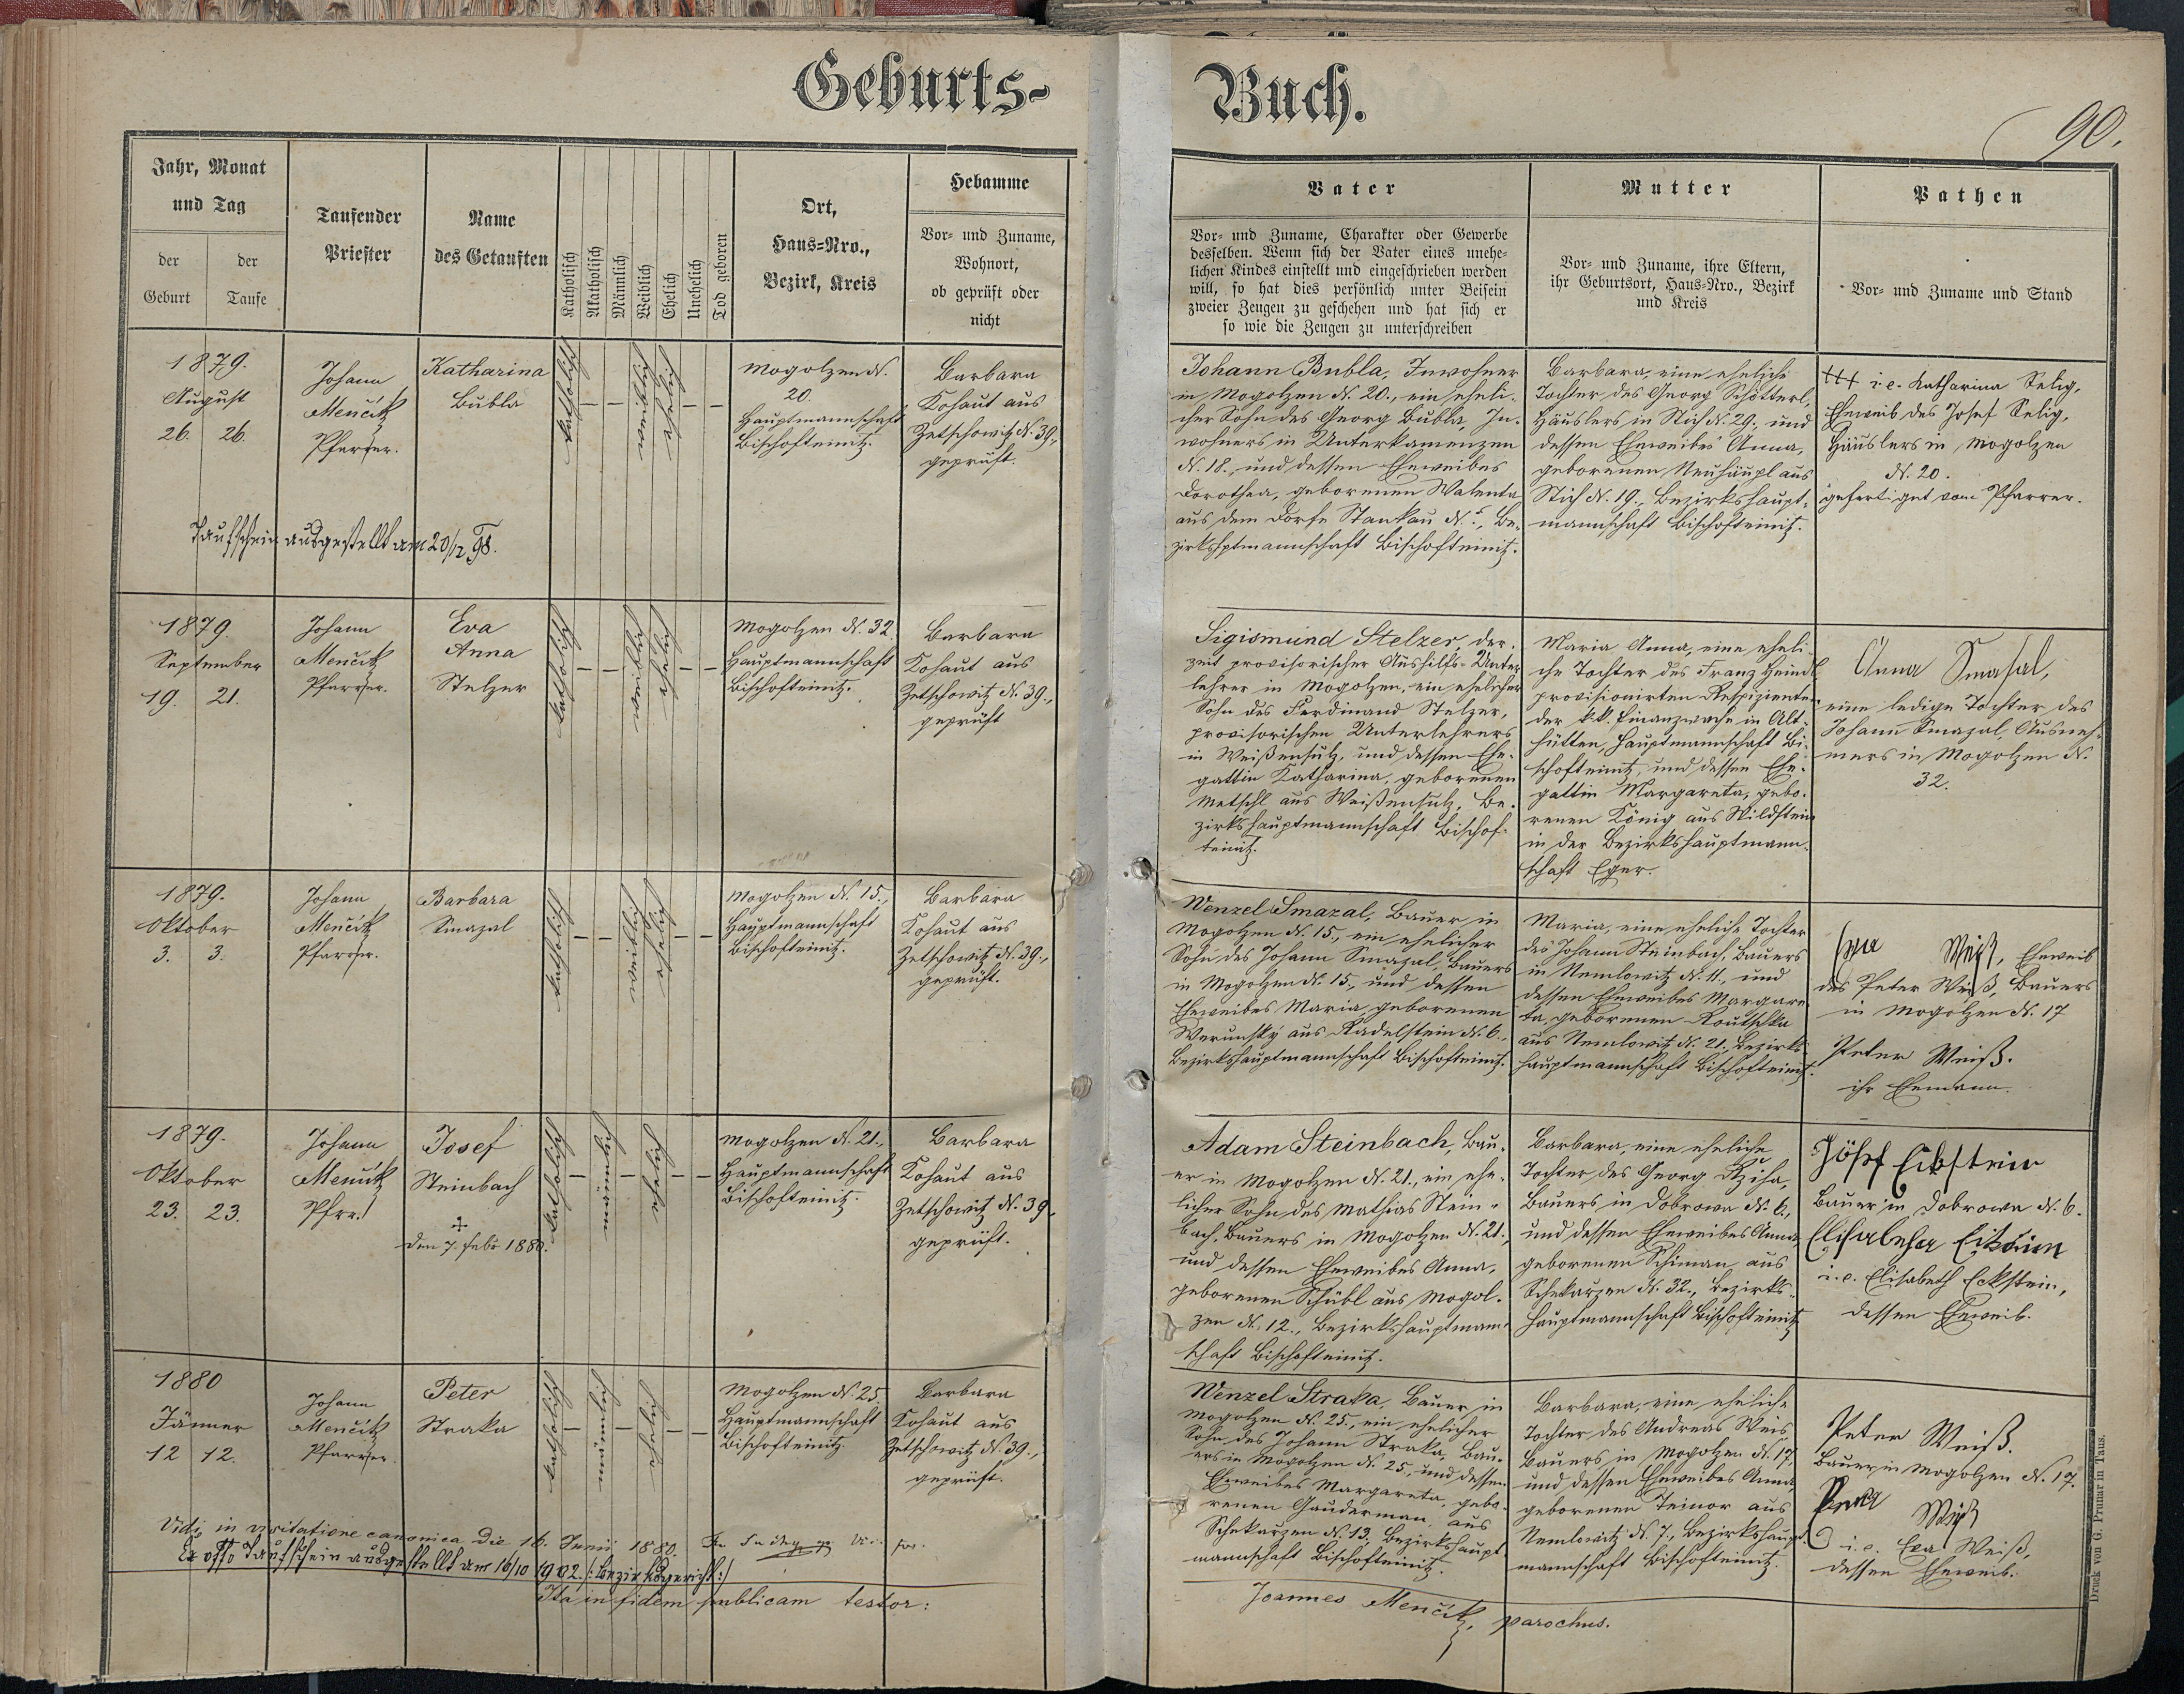 Geburts-
Buch.
90.
Jahr, Monat
und Tag
der
Geburt
der
Taufe
Taufender
Priester
Name
des Getauften
Katholisch
Akatholisch
Männlich
Weiblich
Ehelich
Unehelich
Tod geboren
Ort,
Haus-Nro.,
Bezirk, Kreis
Hebamme
Vor- und Zuname,
Wohnort,
ob geprüft oder
nicht
Vater
Vor- und Zuname, Charakter oder Gewerbe
desselben. Wenn sich der Vater eines unehe-
lichen Kindes einstellt und eingeschrieben werden
will, so hat dies persönlich unter Beisein
zweier Zeugen zu geschehen und hat sich er
so wie die Zeugen zu unterschreiben
Mutter
Vor- und Zuname, ihre Eltern,
ihr Geburtsort, Haus-Nro., Bezirk
und Kreis
Pathen
Vor- und Zuname und Stand
1879.
August
26. 26.
Johann
Menčik
Pfarrer.
Katharina
Bubla
katholisch
—
—
weiblich
ehelich
—
—
Mogolzen N.
20.
Hauptmannschaft
Bischofteinitz.
Barbara
Kohaut aus
Zetschowitz N. 39.,
geprüft.
Johann Bubla, Inwohner
in Mogolzen N. 20., ein eheli-
cher Sohn des Georg Bubla, In-
wohners in Unterkamenzen
N. 18., und dessen Eheweibes
Dorothea, geborenen Walenta
aus dem Dorfe Stankau N. 5., Be-
zirkshptmannschaft Bischofteinitz.
Barbara, eine eheliche
Tochter des Georg Schötterl,
Häuslers in Stich N. 29., und
dessen Eheweibes Anna,
geborenen Neuhäupl aus
Stich N. 19., Bezirkshaupt-
mannschaft Bischofteinitz.
+++ i.e. Katharina Selig,
Eheweib des Josef Selig,
Häuslers in Mogolzen
N. 20.
gefertiget vom Pfarrer.
Taufschein ausgestellt am 20/12 98.
1879.
September
19. 21.
Johann
Menčik
Pfarrer.
Eva
Anna
Stelzer
katholisch
—
—
weiblich
ehelich
—
—
Mogolzen N. 32.
Hauptmannschaft
Bischofteinitz.
Barbara
Kohaut aus
Zetschowitz N. 39.,
geprüft
Sigismund Stelzer, der-
zeit provisorischer Aushilfs-Unter-
lehrer in Mogolzen, ein ehelicher
Sohn des Ferdinand Stelzer,
provisorischen Unterlehrers
in Weißensulz, und dessen Ehe-
gattin Katharina, geborenen
Metschl aus Weißensulz, Be-
zirkshauptmannschaft Bischof-
teinitz.
Maria Anna, eine eheli-
che Tochter des Franz Heindl
provisionirten Respizienten
der kk. Finanzwache in Alt-
hütten, Hauptmannschaft Bi-
schofteinitz, und dessen Ehe-
gattin Margareta, gebo-
renen König aus Wildstein
in der Bezirkshauptmann-
schaft Eger.
Anna Smasal,
eine ledige Tochter des
Johann Smazal, Ausneh-
mers in Mogolzen N.
32.
1879.
Oktober
3. 3.
Johann
Menčik
Pfarrer.
Barbara
Smazal
katholisch
—
—
weiblich
ehelich
—
—
Mogolzen N. 15.,
Hauptmannschaft
Bischofteinitz.
Barbara
Kohaut aus
Zetschowitz N. 39.,
geprüft.
Wenzel Smazal, Bauer in
Mogolzen N. 15., ein ehelicher
Sohn des Johann Smazal, Bauers
in Mogolzen N. 15., und dessen
Eheweibes Maria, geborenen
Werunsky aus Radelstein N. 6.,
Bezirkshauptmannschaft Bischofteinitz.
Maria, eine eheliche Tochter
des Johann Steinbach, Bauers
in Nemlowitz N. 11., und
dessen Eheweibes Margare-
ta, geborenen Koutschka
aus Nemlowitz N. 21. Bezirks-
hauptmannschaft Bischofteinitz.
Weiß, Eheweib
des Peter Weiß, Bauers
in Mogolzen N. 17
Peter Weiß.
ihr Ehemann.
1879.
Oktober
23. 23.
Johann
Menčik
Pfrr.
Josef
Steinbach
+
den 7. Febr 1880.
katholisch
—
männlich
—
ehelich
—
—
Mogolzen N. 21.,
Hauptmannschaft
Bischofteinitz.
Barbara
Kohaut aus
Zetschowitz N. 39.,
geprüft.
Adam Steinbach, Bau-
er in Mogolzen N. 21., ein ehe-
licher Sohn des Mathias Stein-
bach, Bauers in Mogolzen N. 21.,
und dessen Eheweibes Anna,
geborenen Schübl aus Mogol-
zen N. 12., Bezirkshauptmann-
schaft Bischofteinitz.
Barbara, eine eheliche
Tochter des Georg Rziha,
Bauers in Dobrowa N. 6.,
und dessen Eheweibes Anna
geborenen Schiman aus
Schekarzen N. 32., Bezirks-
hauptmannschaft Bischofteinitz
Jösef Eckstein
Bauer in Dobrowa N. 6.
Elisabeha
i.e. Elisabeth Eckstein,
dessen Eheweib.
1880
Jänner
12 12.
Johann
Menčik
Pfarrer.
Peter
Straka
katholisch
—
männlich
—
ehelich
—
—
Mogolzen N. 25.
Hauptmannschaft
Bischofteinitz.
Barbara
Kohaut aus
Zetschowitz N. 39.,
geprüft.
Wenzel Straka, Bauer in
Mogolzen N. 25., ein ehelicher
Sohn des Johann Straka, Bau-
ers in Mogolzen N. 25., und dessen
Eheweibes Margareta, gebo-
renen Gauderman aus
Schekarzen N. 13, Bezirkshaupt-
mannschaft Bischofteinitz.
Barbara, eine eheliche
Tochter des Andreas Weis
Bauers in Mogolzen N. 17.
und dessen Eheweibes Anna,
geborenen Teinor aus
Nemlowitz N. 7., Bezirkshaupt-
mannschaft Bischofteinitz.
Peter Weiß.
Bauer in Mogolzen N. 17.
Weiß
i.e. Eva Weiß,
dessen Eheweib.
Vidi in visitatione canonica die 16. Junii 1880.
Ex offo Taufschein ausgestellt am 16/10 1902. /: Bezirksgericht :/
Ita in fidem publicam testor:
Joannes Menčik, parochus.
Druck von G. Prunar in Taus.